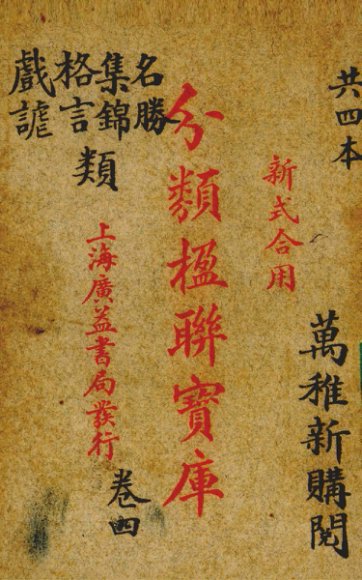 共四本
萬稚新購閱
新式合用
分類楹聯寶庫
名勝
集錦
格言
戲謔
類
上海廣益書局發行
卷四